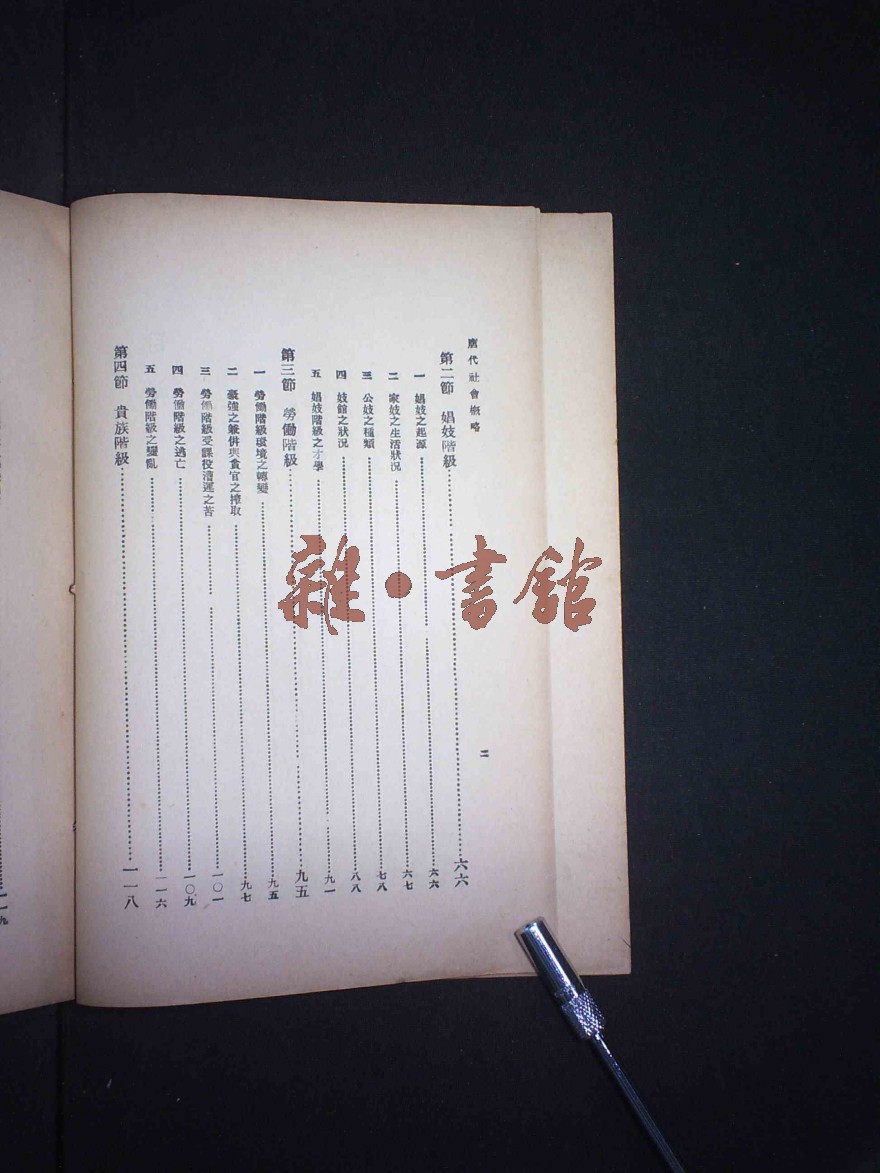 唐代社會概略
二
第二節　娼妓階級……六六
一　娼妓之起源……六六
二　家妓之生活狀況……六七
三　公妓之種類……七八
四　妓館之狀況……八八
五　娼妓階級之才學……九一
第三節　勞働階級……九五
一　勞働階級環境之轉變……九五
二　豪強之兼併與貪官之搾取……九七
三　勞働階級受課役漕運之苦……一〇一
四　勞働階級之逃亡……一〇九
五　勞働階級之變亂……一一六
第四節　貴族階級……一一八
一一九
雜·書館